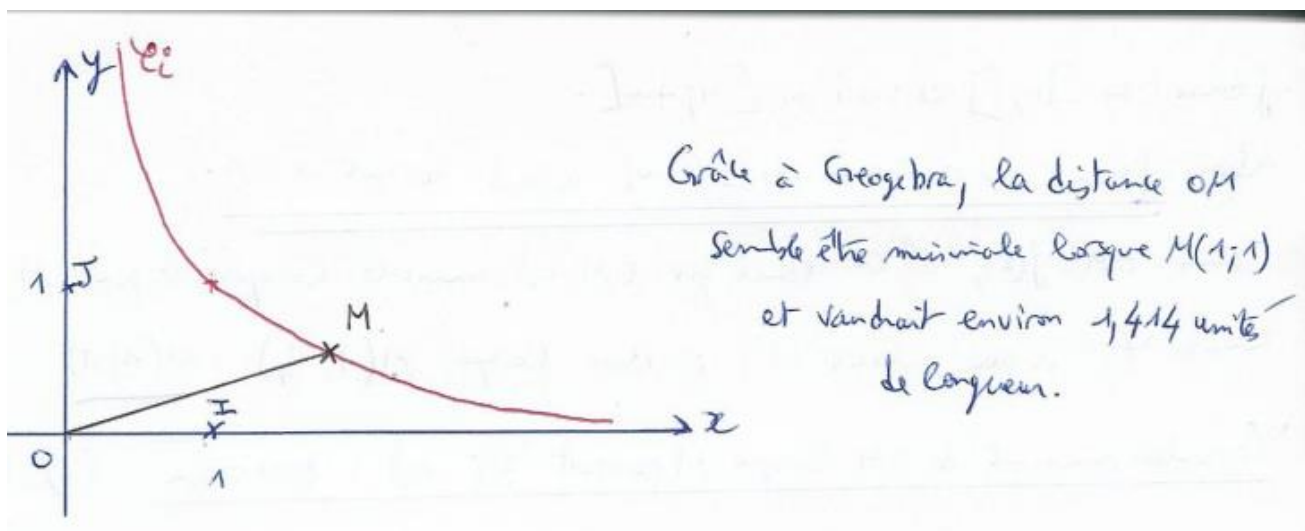 y
𝒞i
Grâce à Geogebra, la distance OM
semble être minimale lorsque M(1;1)
1 J
M
et vaudrait environ 1,414 unités
de longueur.
I
x
O
1